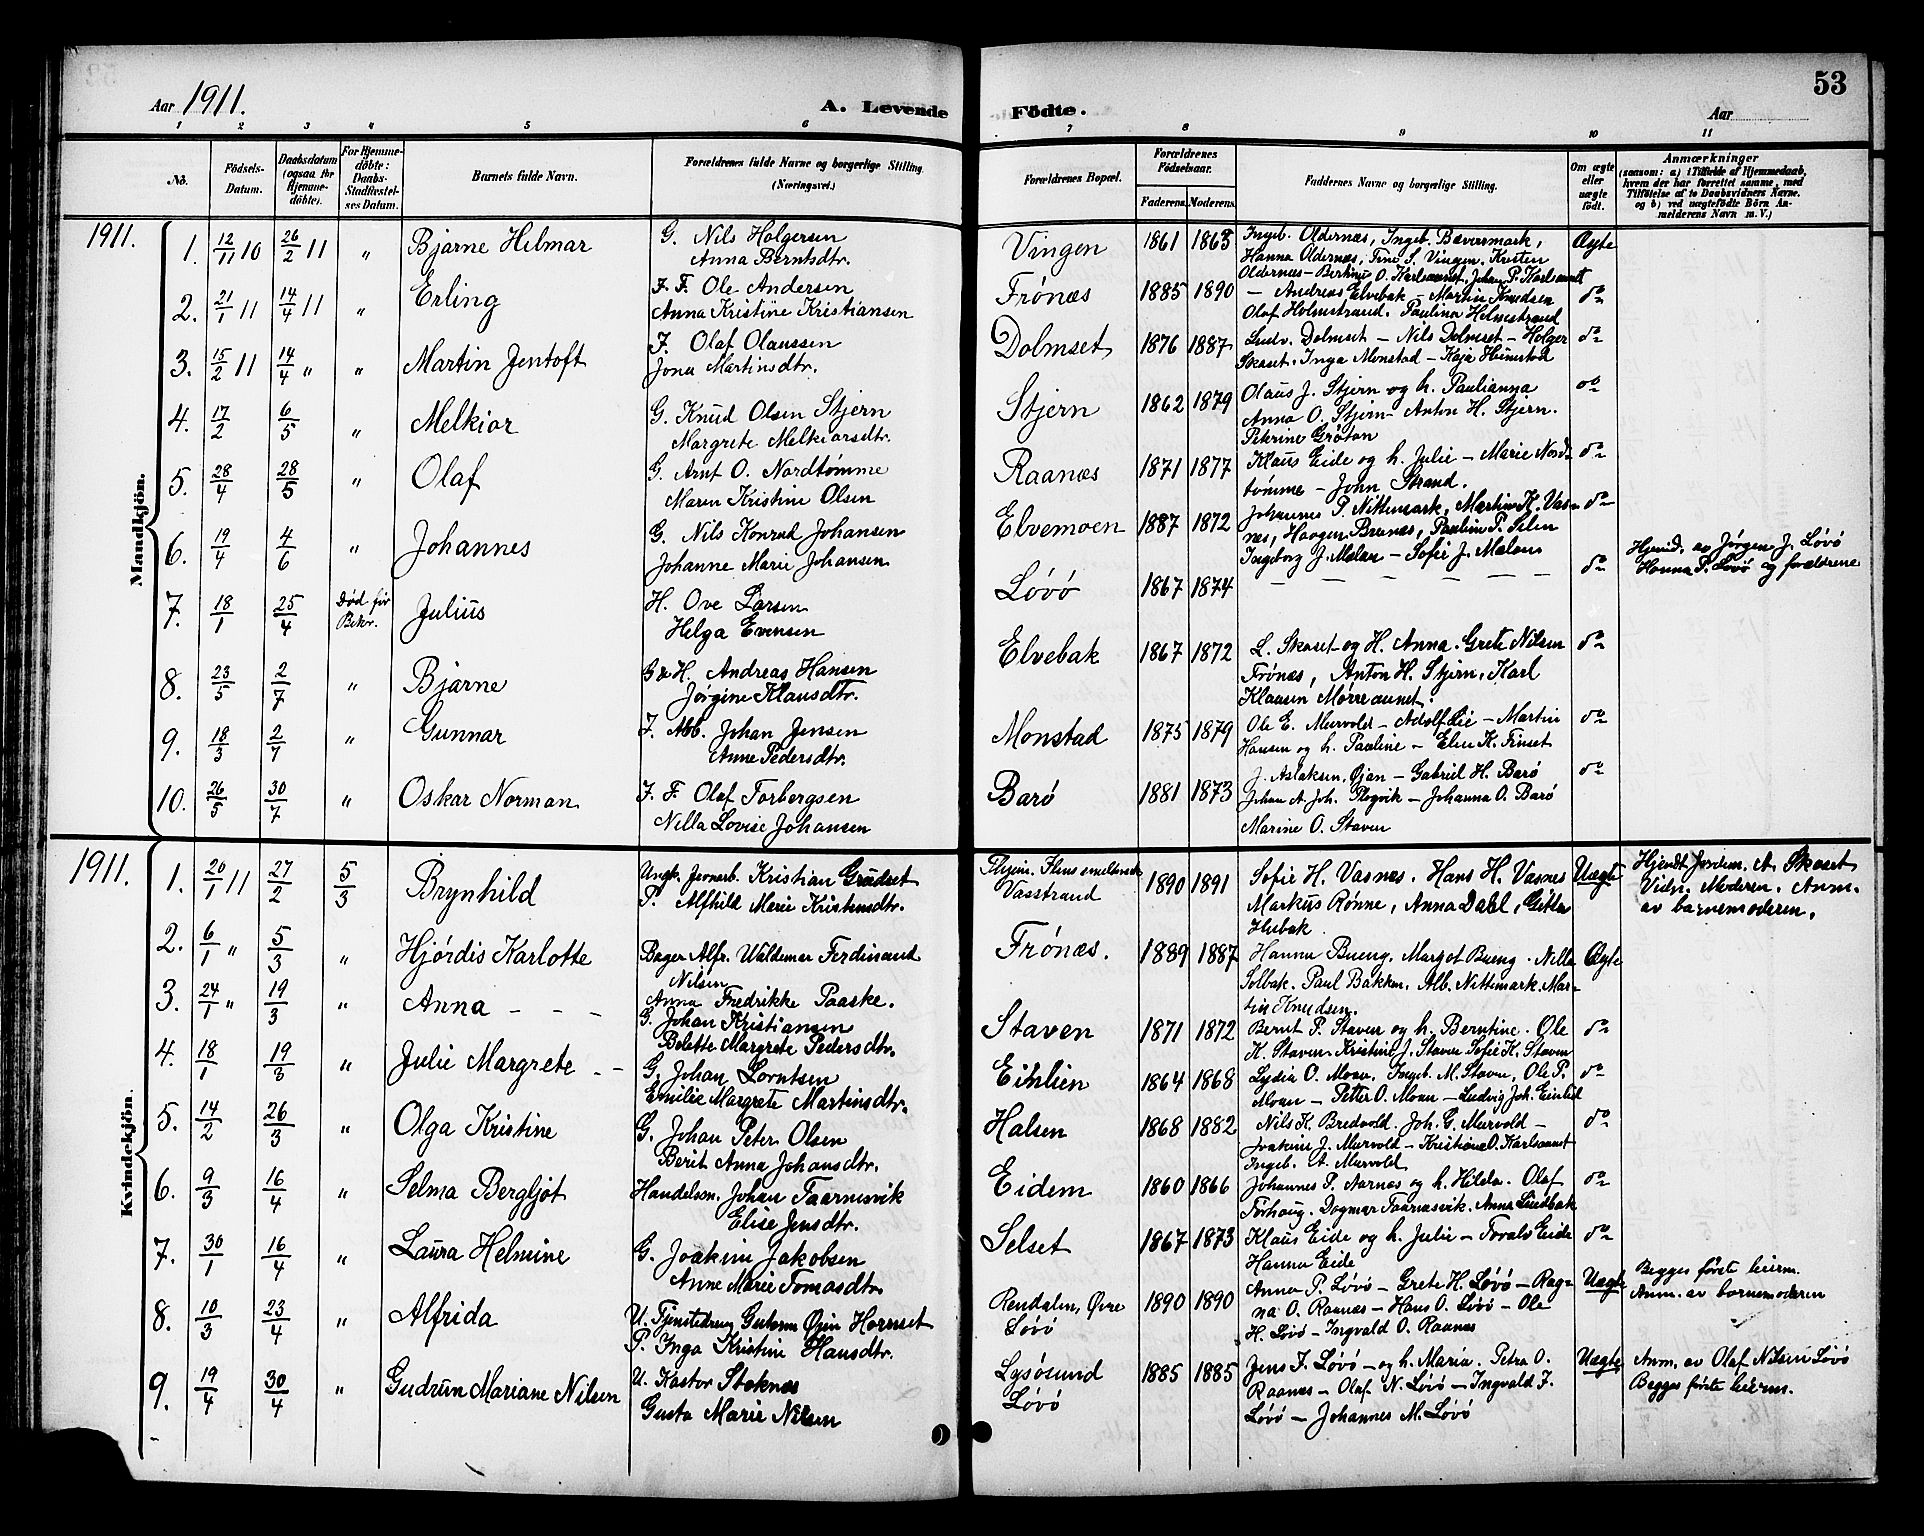 53
Aar 1911.
A. Levende Födte.
Aar
1 2 3 4 5 6 7 8 9 10 11
No.
Födsels-Datum.
Daabsdatum (ogsaa for Hjemme-döbte).
For Hjemme-döbte: Daabs-Stadfæstel-ses Datum.
Barnets fulde Navn.
Forældrenes fulde Navne og borgerlige Stilling. (Næringsvei.)
Forældrenes Bopæl.
Forældrenes Födselsaar.
Faderens. Moderens.
Faddernes Navne og borgerlige Stilling.
Om ægte eller uægte födt.
Anmærkninger
(saasom: a) i Tilfælde af Hjemmedaab, hvem der har forrettet samme, med Tilföielse af to Daabsvidners Navne. og b) ved uægtefödte Börn An-melderens Navn m. V.)
Mandkjön.
1911.
1. 12/11 10 26/2 11 " Bjarne Hilmar
G. Nils Holgersen
Anna Berntsdtr.
Vingen 1861 1863
Ingeb. Oldernæs, Ingeb. Bævermark,
Hanna Oldernæs, Trine S. Vingen. Kristen
Oldernæs - Bertine O. Karlsaunet. Johan P. Karlsaunet
Ægte
2. 21/1 11 14/4 11 " Erling
F. F. Ole Andersen
Anna Kristine Kristiansen
Frönæs 1885 1890
- Andreas Elvebak - Martin Knudsen
Olaf Holmstrand. Paulina Holmstrand
do
3. 15/2 11 14/4 " " Martin Jentoft
F. Olaf Olaussen
Jona Martinsdtr.
Dolmset 1876 1887
Ludv. Dolmset - Nils Dolmset - Holger
Skaset. Inga Monstad - Kaja Heimstad
do
4. 17/2 6/5 " Melkior
G. Knud Olsen Stjern
Margrete Melkiorsdtr.
Stjern 1862 1879
Olaus J. Stjern og h. Paulianna
Anna O. Stjern - Anton H. Stjern.
Petrine Gröton
do
5. 28/4 28/5 " Olaf
G. Arnt O. Nordtømme
Maren Kristine Olsen
Raanæs 1871 1877
Klaus Eide og h. Julie - Marie Nord-
tømme - John Strand.
do
6. 19/4 4/6 " Johannes
G. Nils Konrad Johansen
Johanne Marie Johansen
Elvemoen 1887 1872
Johannes P. Nittemark, Martin K. Vas-
næs, Haagen Brunæs, Pauline P. Selen
Ingeborg J. Mælan - Sofie J. Mælan
do
7. 18/1 25/4 Död för Bekr. Julius
H. Ove Larsen
Helga Evensen
Lövö 1867 1874
- - - - - - -
do
Hjemd. av Jörgen J. Lövö
Hanna P. Lövö og forældrene
8. 23/5 2/7 " Bjarne
G & H. Andreas Hansen
Jörgine Klausdtr.
Elvebak 1867 1872
L. Skaset og H. Anna. Grete Nilsen
Frönæs, Anton H. Stjern. Karl
Klausen Mörreaunet.
do
9. 18/3 2/7 " Gunnar
F. Arb. Johan Jensen
Anne Pedersdtr.
Monstad 1875 1879
Ole E. Murvold - Adolf Lie - Martin
Hansen og h. Pauline - Elen K. Finset
do
10. 26/5 30/7 " Oskar Norman
F. F. Olaf Torbergsen
Nilla Lovise Johansen
Barö 1881 1873
J. Aslaksen, Öjan - Gabriel H. Barö
Johan A. Joh. Plogvik - Johanna O. Barö
Marine O. Staven
do
Kvindekjön.
1911.
1. 20/1 11 27/2 5/3 Brynhild
Ungk. Kristian Grudset
P. Alfhild Marie Kristensdtr.
Vasstrand 1890 1891
Sofie H. Vasnes. Hans H. Vasnes
Markus Rönne, Anna Dahl, Gitta
Uægte
A. Skaset
Vidn. Moderen. Anm.
av barnemoderen.
2. 6/1 " 5/3 " Hjördis Karlotte
Bager Alfr. Waldemar Ferdinand
Nilsen
Anna Fredrikke Paaske.
Frönæs. 1889 1887
Hanna Bueng. Margot Bueng. Nilla
Solbak. Paul Bakken, Alb. Nittemark. Mar-
tin Knudsen.
Ægte
3. 24/1 " 19/3 " Anna - - -
G. Johan Kristiansen
Belette Margrete Pedersdtr.
Staven 1871 1872
Bernt P. Staven og h. Berntine. Ole
K. Staven. Kristine J. Staven Sofie K. Staven
do
4. 18/1 19/3 " Julie Margrete - -
G. Johan Lorntsen
Emilie Margrete Martinsdtr.
Einlien 1864 1868
Lydia O. Moan. Ingeb. M. Staven, Ole P.
Moan - Petter O. Moan - Ludvig Joh. Einlid
do
5. 14/2 26/3 " Olga Kristine
G. Johan Peter Olsen
Berit Anna Johansdtr.
Halsen 1868 1882
Nils K. Bredvold. Joh. G. Murvold -
Joakim J. Murvold - Kristian O. Karlsaunet
Ingeb. A. Murvold
do
6. 9/3 16/4 " Selma Bergljot
Handelsm. Johan Taarnesvik
Elise Jensdtr.
Eidem 1860 1866
Johannes P. Aarnæs og h. Hilda. Olaf
Forhaug. Dagmar Taarnæsvik. Anna Lindbak
do
7. 30/1 16/4 " Laura Helmine
G. Joakim Jakobsen
Anne Marie Tomasdtr.
Selset 1867 1873
Klaus Eide og h. Julie - Torals Eide
Hanna Eide
do
8. 10/3 23/4 " Alfrida
U. Tjenstedreng Guttorm Öien Hornset
P. Inga Kristine Hansdtr.
Rendalen, Övre
Lövö 1890 1890
Anna P. Lövö - Grete H. Lövö - Rag-
na O. Raanæs - Hans O. Lövö - Ole
H. Lövö - Ingvald O. Raanæs
Uægte
Begges först leierm.
Anm. av barnemoderen
9. 19/4 30/4 " Gudrun Mariane Nilsen
U. Kastor Stoknæs
Gusta Marie Nilsen
Lysösund
Lövö 1885 1885
Jens J. Lövö - og h. Maria. Petra O.
Raanæs - Olaf N. Lövö - Ingvald J.
Lövö - Johannes M. Lövö
Uægte
Anm. av Olaf Nilsen Lövö
Begges förste leierm.